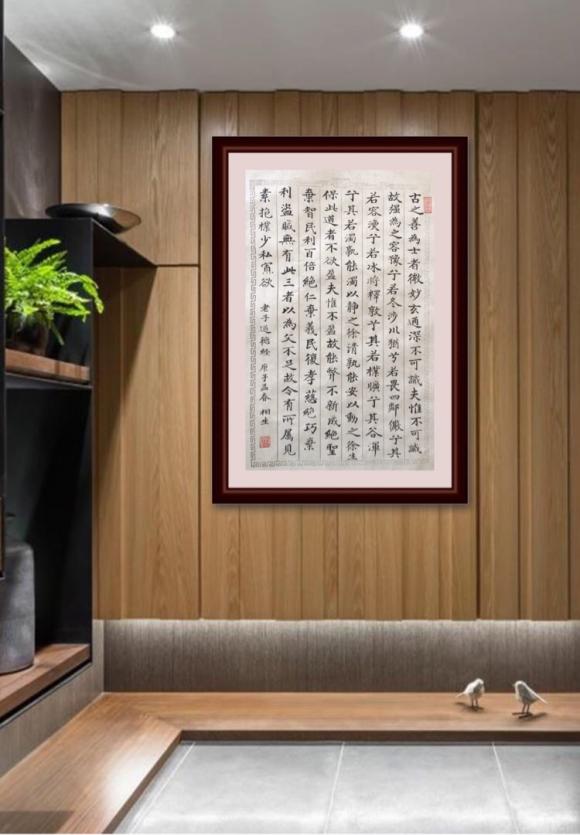 古之善為士者微妙玄通深不可識夫惟不可識
故强為之容豫兮若冬涉川猶兮若畏四鄰儼兮其
若容渙兮若冰將釋敦兮其若樸曠兮其谷渾
兮其若濁孰能濁以靜之徐清孰能安以動之徐生
保此道者不欲盈夫惟不盈故能弊不新成絕聖
棄智民利百倍絕仁棄義民復孝慈絕巧棄
利盜賊無有此三者以為文不足故令有所屬見
素抱樸少私寡欲 老子道德經 庚子孟春 相生